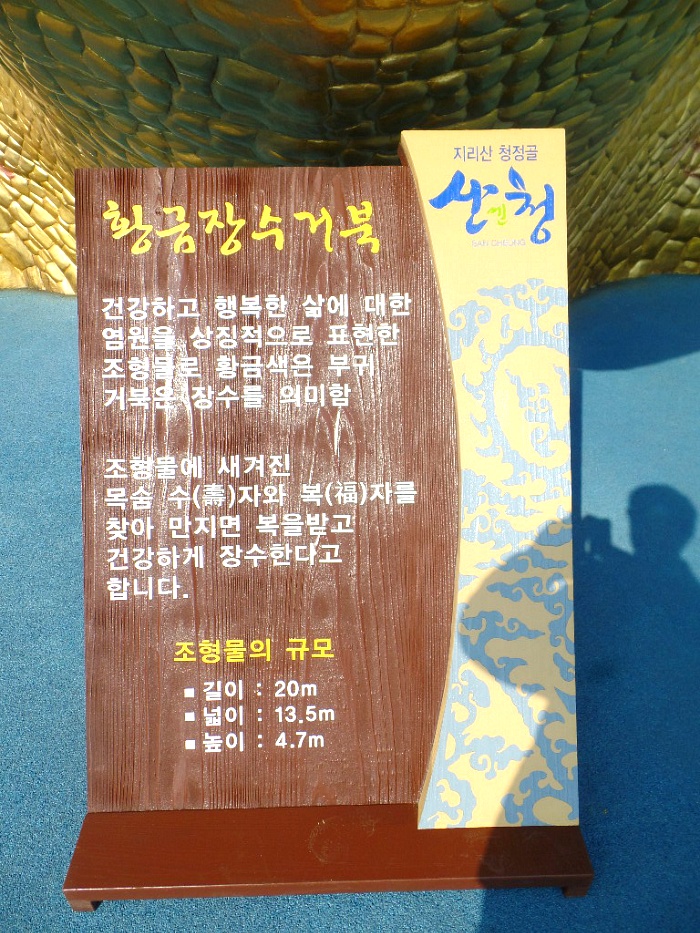 황금장수거북
건강하고 행복한 삶에 대한
염원을 상징적으로 표현한
조형물로 황금색은 부귀
거북은 장수를 의미함
조형물에 새겨진
목숨 수(壽)자와 복(福)자를
찾아 만지면 복을받고
건강하게 장수한다고
합니다.
조형물의 규모
■ 길이 : 20m
■ 넓이 : 13.5m
■ 높이 : 4.7m
지리산 청정골
산엔청
SAN CHEONG